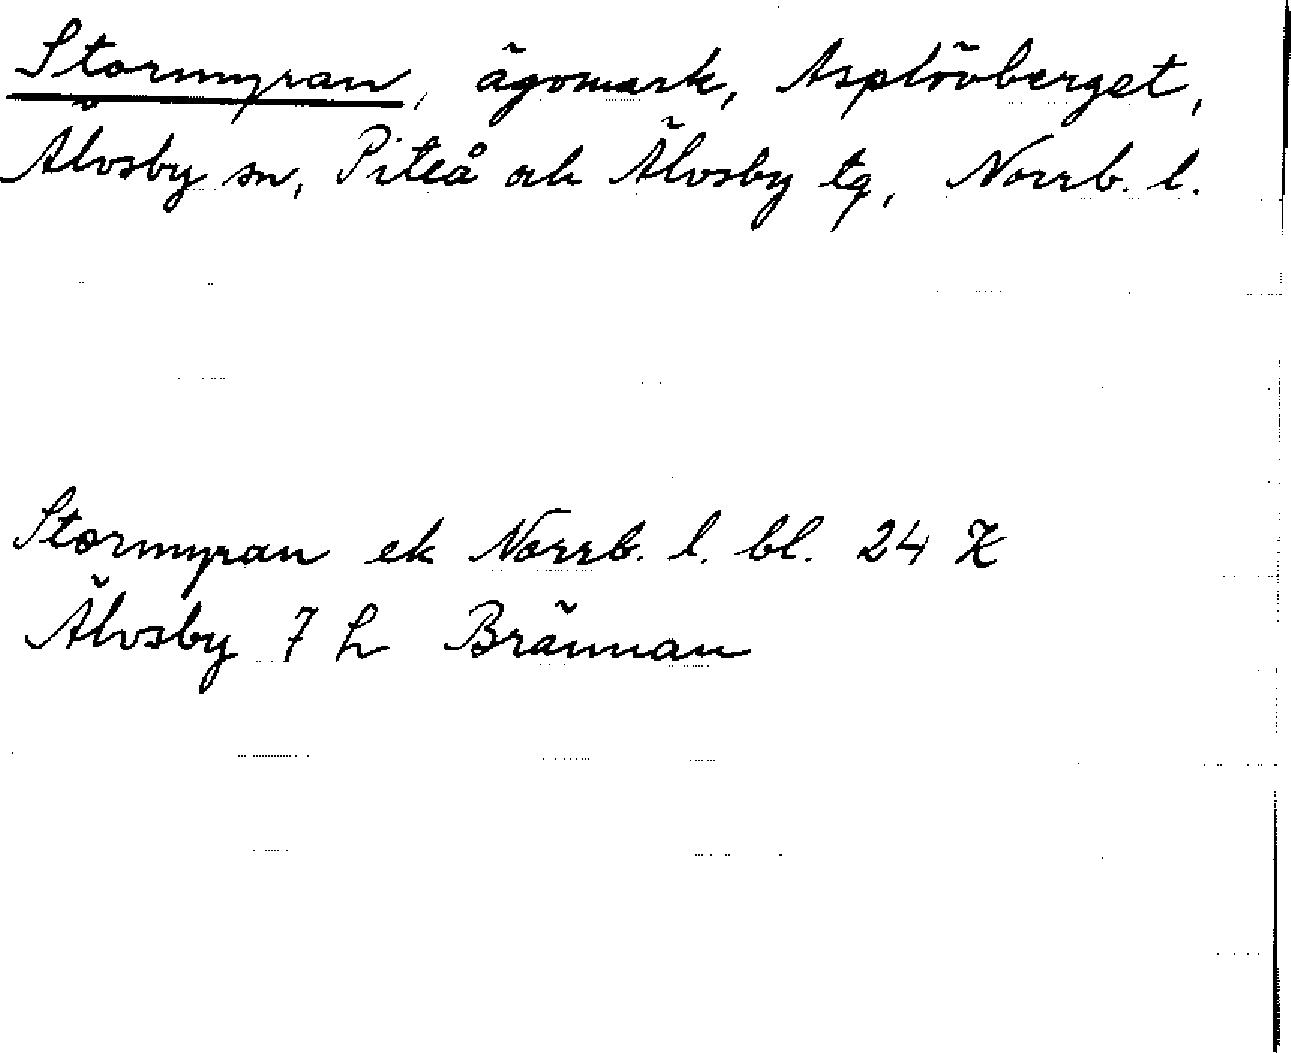 Stormyran, ägomark, Asplövberget,
Älvsby sn, Piteå och Älvsby tg, Norrb. l.
Stormyran ek Norrb. l. bl. 24 K
Älvsby 7 h Brännan